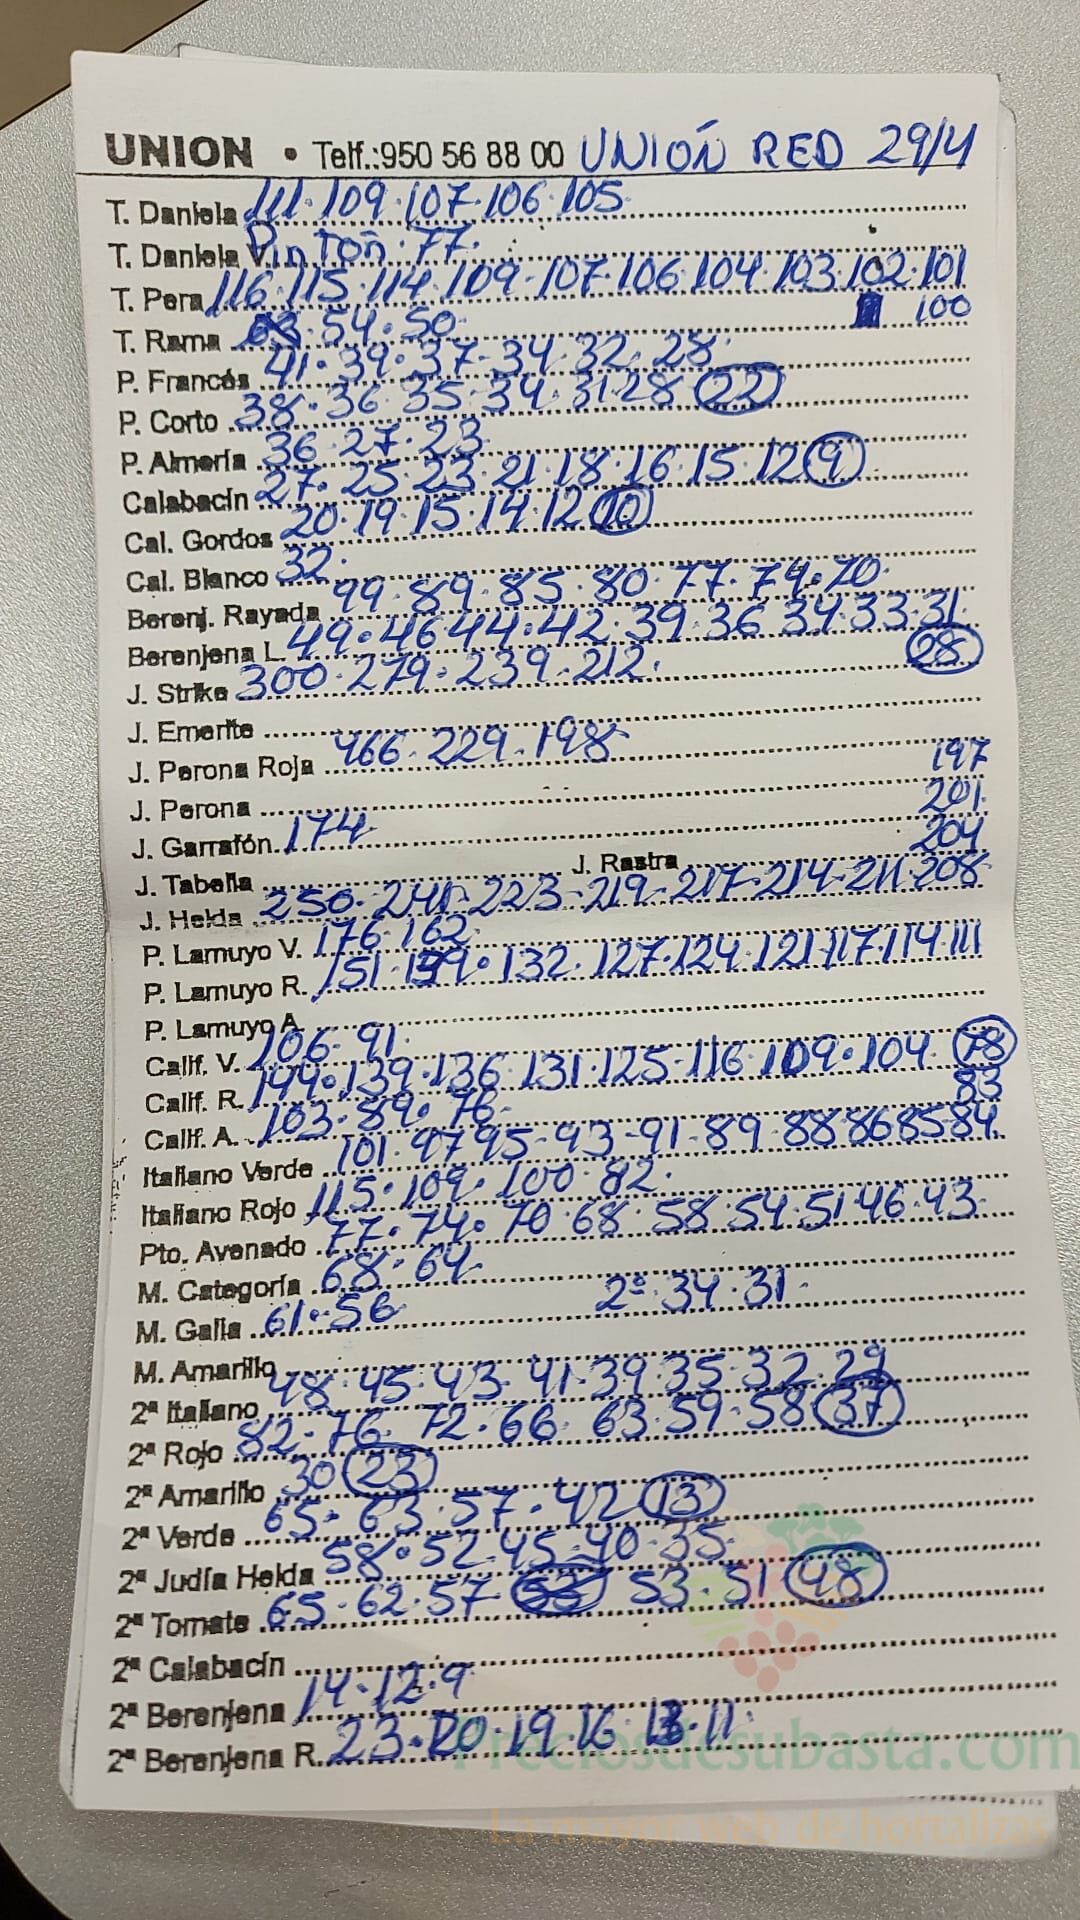 UNION • Telf.:950 56 88 00 UNIÓN RED 29/4
T. Daniela 111·109·107·106·105
T. Daniela V. Pinton·77·
T. Pera 116·115·114·109·107·106·104·103·102·101
100
T. Rama 63·54·50
P. Francés 41·39·37·34·32·28·
P. Corto 38·36·35·34·31·28 22
P. Almería 36·27·23
Calabacín 27·25·23·21·18·16·15·12 9
Cal. Gordos 20·19·15·14·12 10
Cal. Blanco 32·
Berenj. Rayada 99·89·85·80·77·74·70·
Berenjena L. 49·46·44·42·39·36·34·33·31·
28
J. Strike 300·279·239·212·
J. Emerite
J. Perona Roja 466·229·198
197
J. Perona
201
J. Garrafón 174
204
J. Tabella J. Rastra
J. Helda 250·241·223·219·217·214·211·208
P. Lamuyo V. 176·162
P. Lamuyo R. 151·139·132·127·124·121·117·114·111
P. Lamuyo A.
Calif. V. 106·91·
Calif. R. 144·139·136·131·125·116·109·104 78
83
Calif. A. 103·89·76
Italiano Verde 101·97·95·93·91·89·88·86·85·84
Italiano Rojo 115·109·100·82·
Pto. Avenado 77·74·70·68·58·54·51·46·43·
M. Categoría 68·64·
M. Galia 61·56 2ª·34·31·
M. Amarillo
2ª Italiano 48·45·43·41·39·35·32·29
2ª Rojo 82·76·72·66·63·59·58 37
2ª Amarillo 30 23
2ª Verde 65·63·57·42 13
2ª Judía Helda 58·52·45·40·35
2ª Tomate 65·62·57 53·51 48
2ª Calabacín
2ª Berenjena 14·12·9
2ª Berenjena R. 23·20·19·16·13·11·
Preciosdesubasta.com
La mayor web de hortalizas